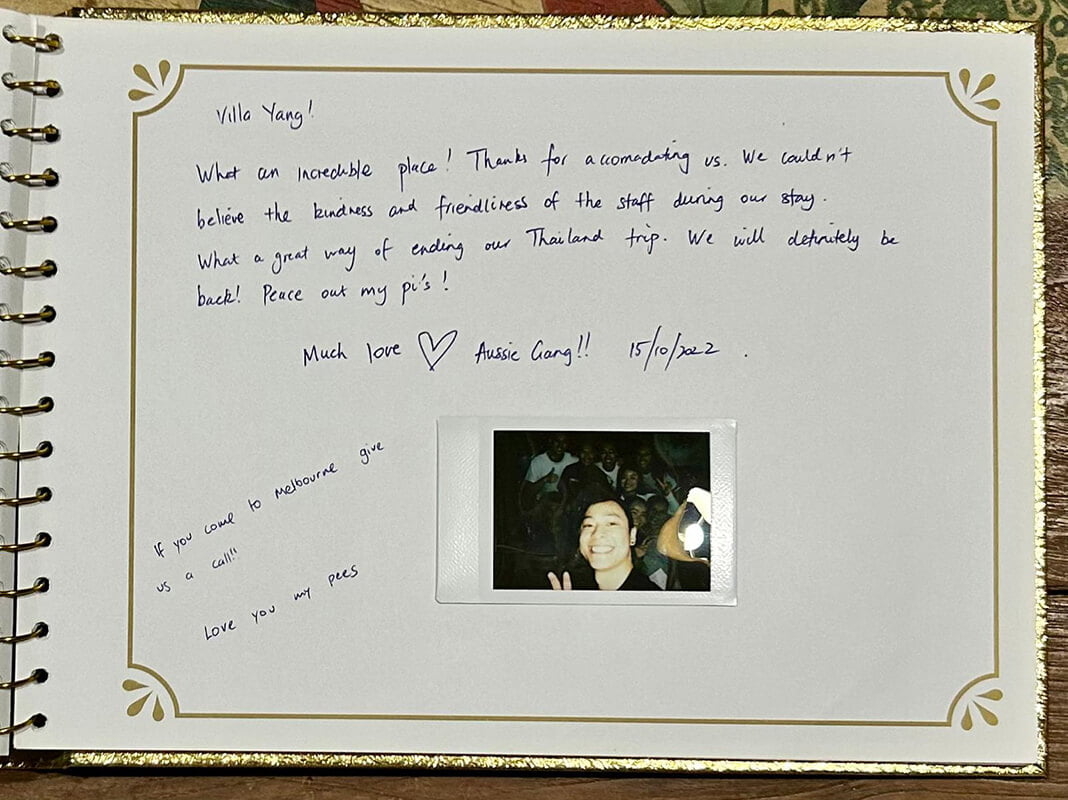 Villa Yang!
What an incredible place! Thanks for accomadating us. We couldn't
believe the kindness and friendliness of the staff during our stay.
What a great way of ending our Thailand trip. We will definitely be
back! Peace out my pi's!
Much love ♡ Aussie Gang!! 15/10/2022.
If you come to Melbourne give
us a call!!
Love you my pees